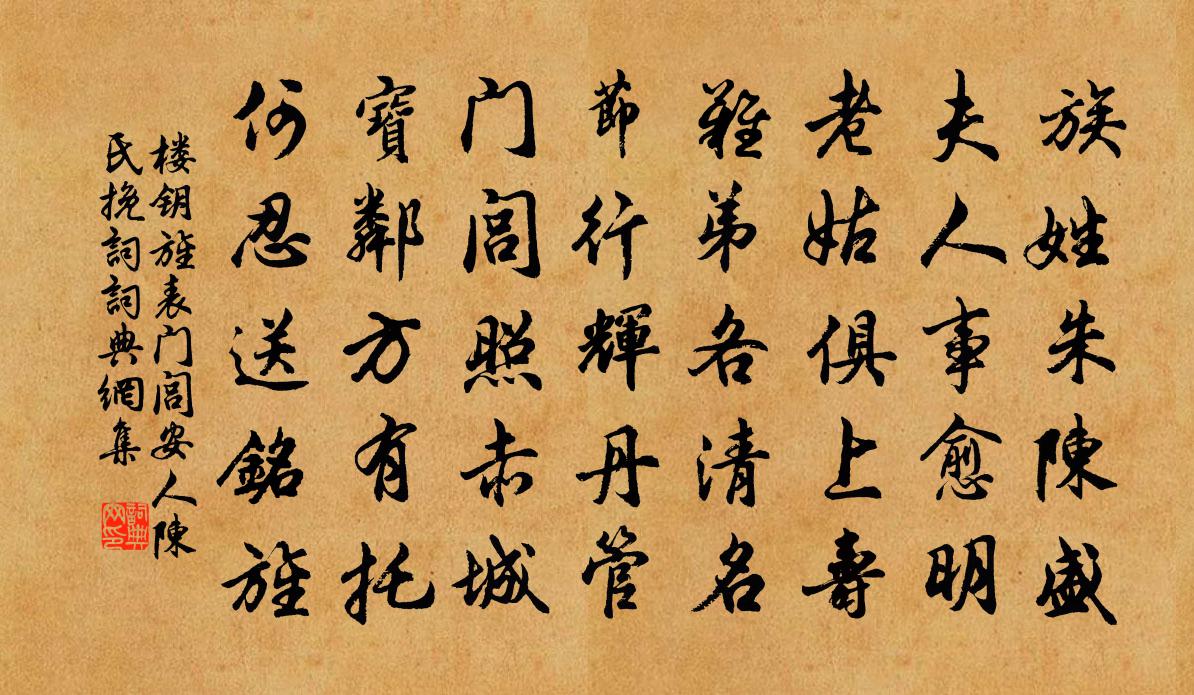 族姓朱陳盛
夫人事愈明
老姑俱上壽
難弟各清名
節行輝丹管
门閭照赤城
寶鄰方有托
何忍送銘旌
楼钥旌表门閭安人陳
氏挽詞詞典網集
詞典网印